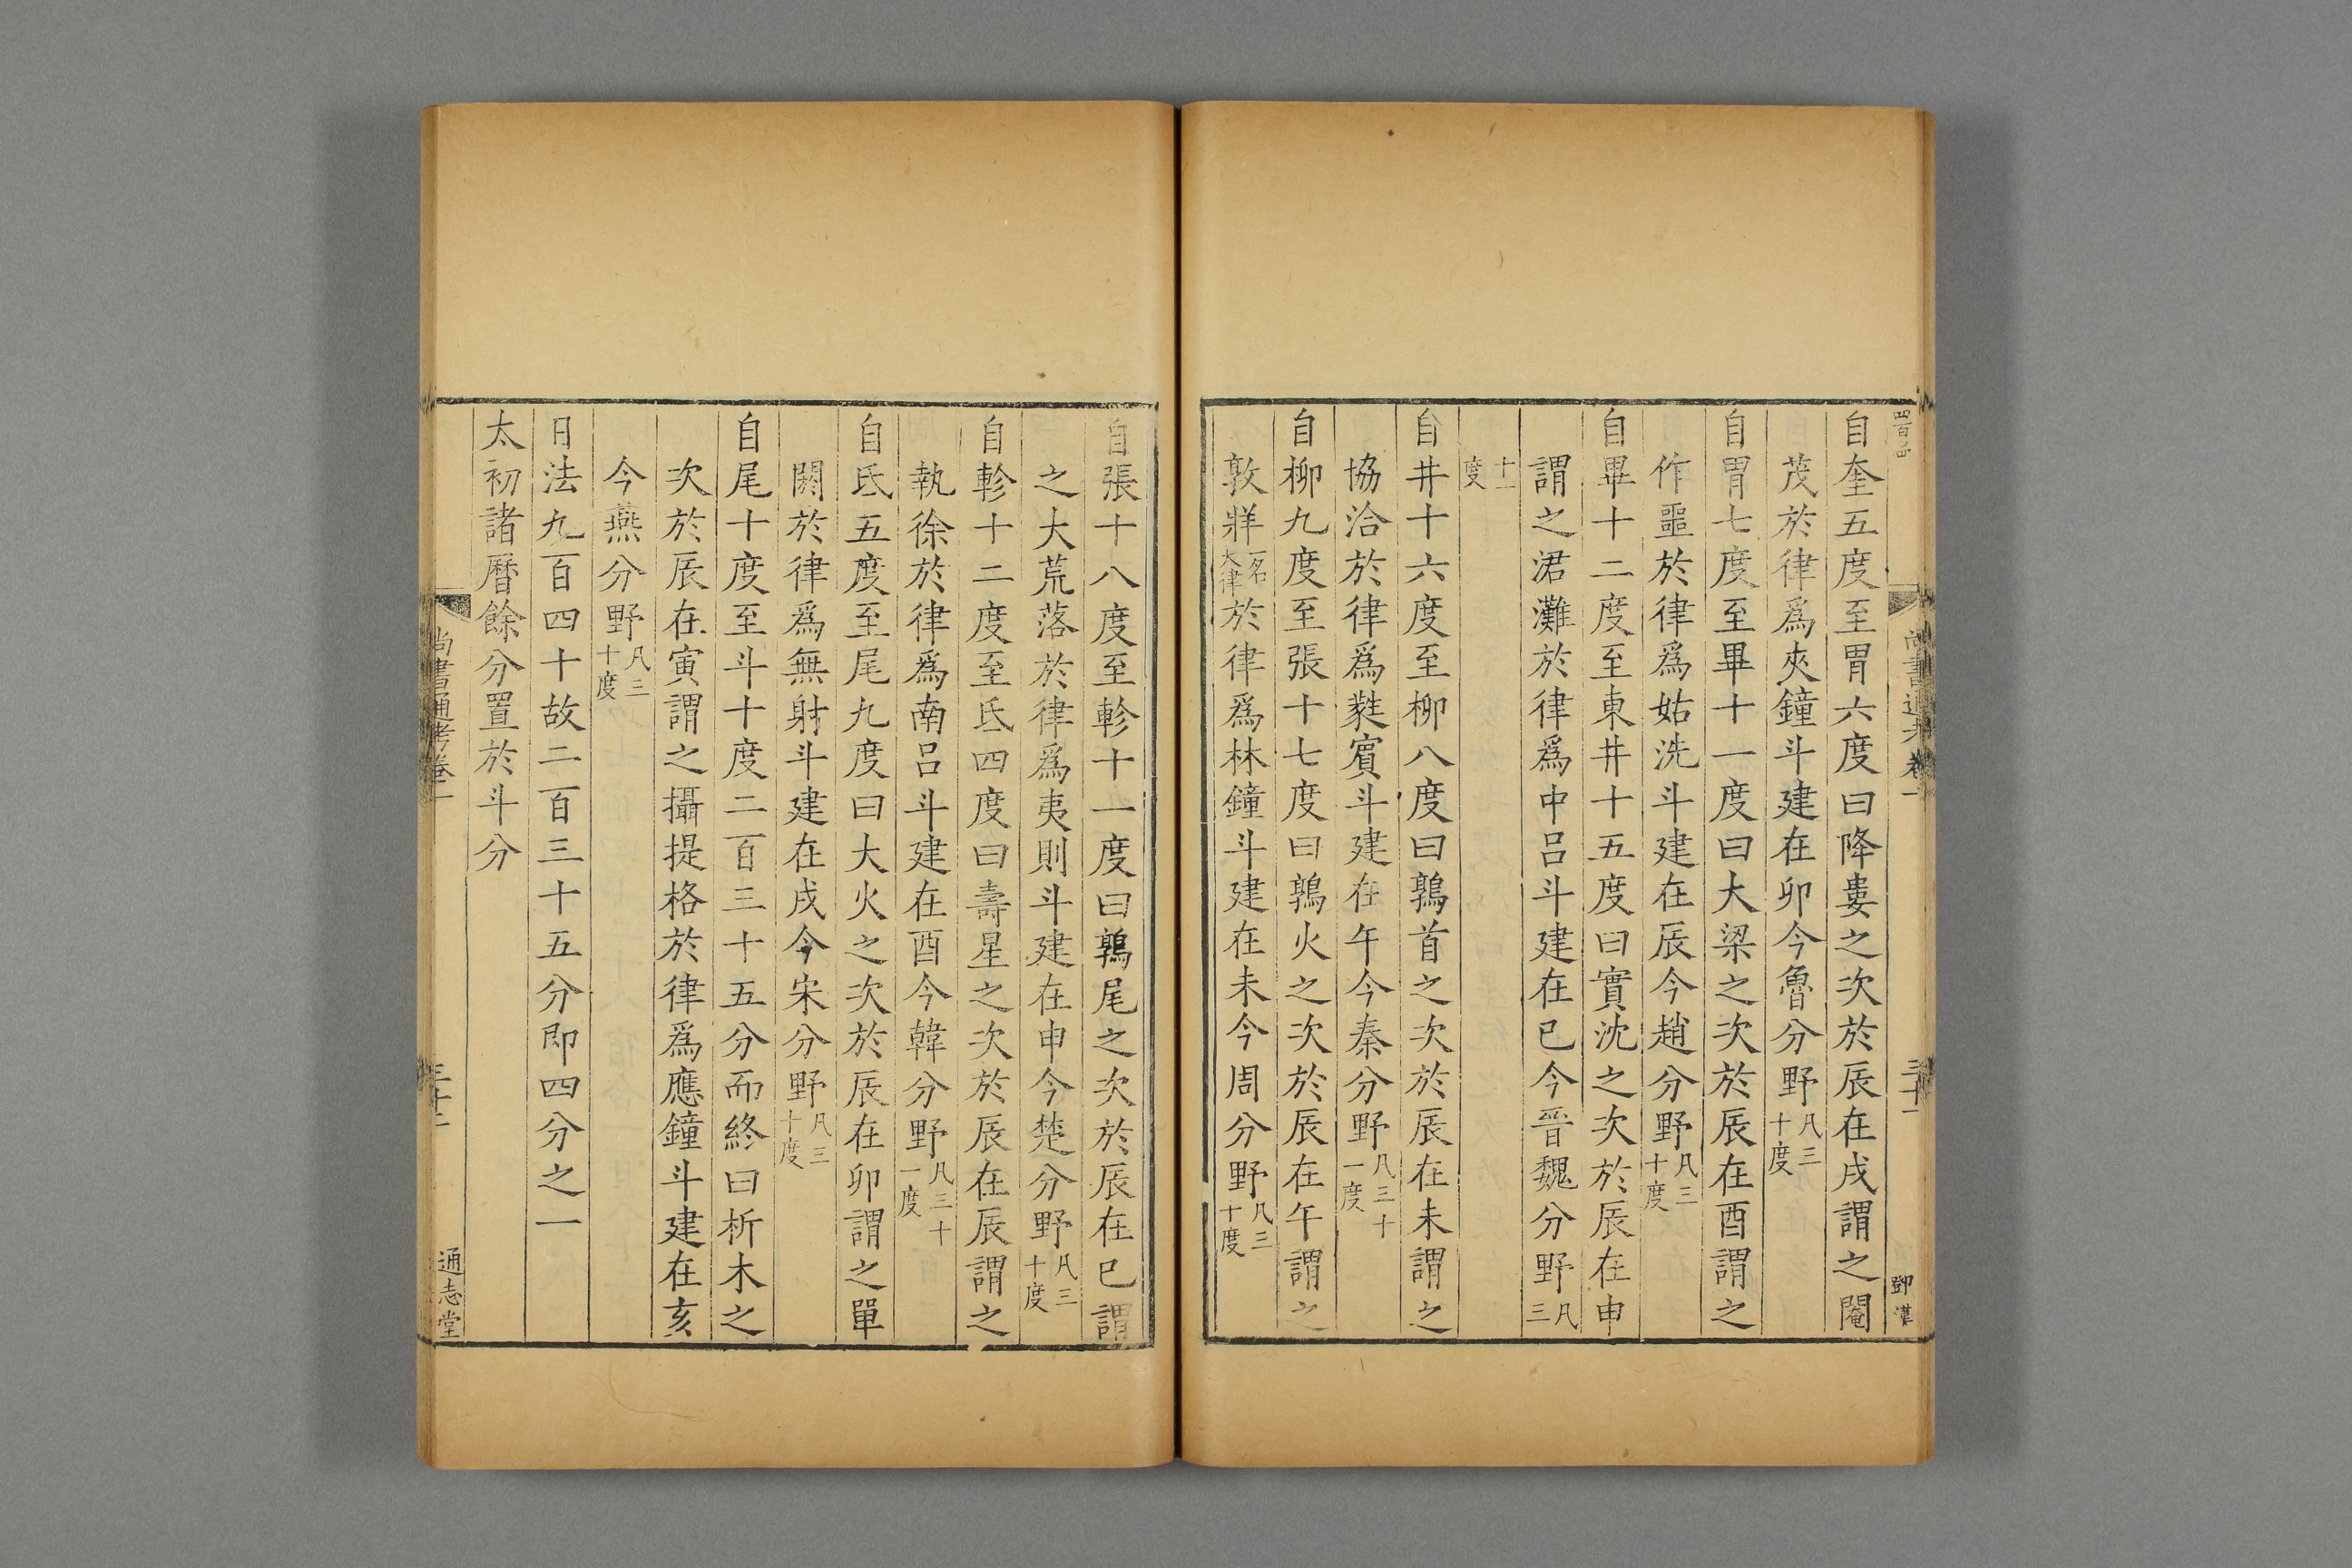 四百四
尚書通考卷一
三十一
鄧漢
自奎五度至胃六度曰降婁之次於辰在戌謂之閹
茂於律爲夾鐘斗建在卯今魯分野凡三十度
自胃七度至畢十一度曰大梁之次於辰在酉謂之
作噩於律爲姑洗斗建在辰今趙分野凡三十度
自畢十二度至東井十五度曰實沈之次於辰在申
謂之涒灘於律爲中呂斗建在巳今晉魏分野凡三
十一度
自井十六度至柳八度曰鶉首之次於辰在未謂之
協洽於律爲蕤賓斗建在午今秦分野凡三十一度
自柳九度至張十七度曰鶉火之次於辰在午謂之
敦牂一名大律於律爲林鐘斗建在未今周分野凡三十度
自張十八度至軫十一度曰鶉尾之次於辰在巳謂
之大荒落於律爲夷則斗建在申今楚分野凡三十度
自軫十二度至氐四度曰壽星之次於辰在辰謂之
執徐於律爲南呂斗建在酉今韓分野凡三十一度
自氐五度至尾九度曰大火之次於辰在卯謂之單
閼於律爲無射斗建在戌今宋分野凡三十度
自尾十度至斗十度二百三十五分而終曰析木之
次於辰在寅謂之攝提格於律爲應鐘斗建在亥
今燕分野凡三十度
日法九百四十故二百三十五分即四分之一
太初諸曆餘分置於斗分
尚書通考卷一
三十一
通志堂